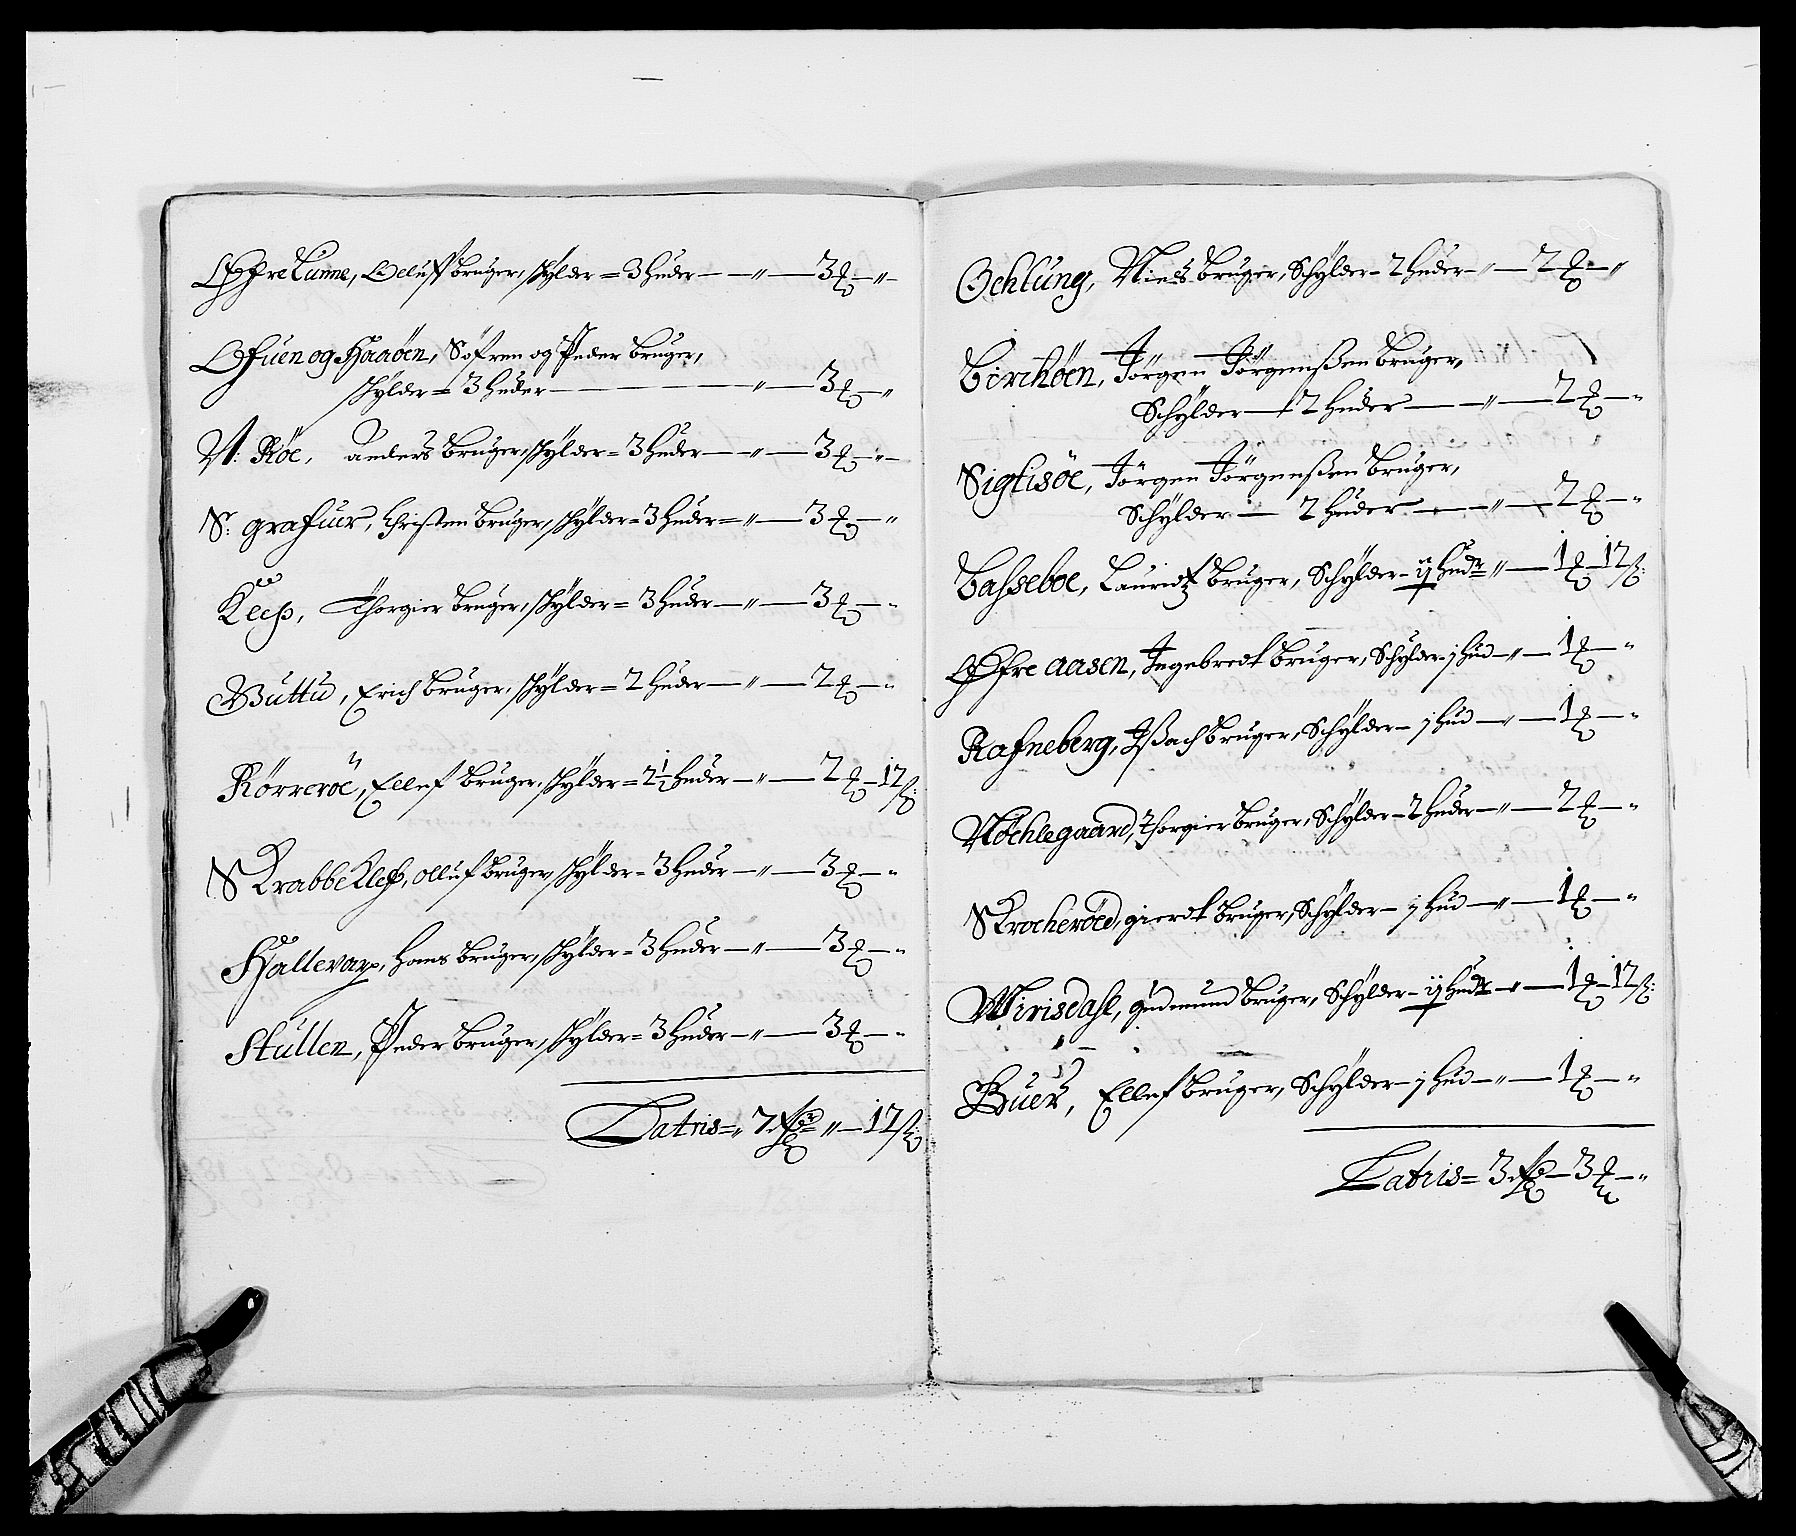 Øfre Lunne, Oeluff bruger, skylder = 3 huder — " — 3 ℔ — "
Ofuen og Haaöen, Söfren og Peder bruger,
skylder = 3 huder — " — 3 ℔ — "
N: Röe, anders bruger, skylder = 3 huder — " — 3 ℔ — "
S: grafuer, Christen bruger, skylder = 3 huder = " — 3 ℔ — "
Kleß, Thorgier bruger, skylder = 3 huder — " — 3 ℔ — "
Buttu, Erich bruger, skylder = 2 huder — " — 2 ℔ — "
Rörreröe, Ellef bruger, skylder = 2½ huder — " — 2 ℔ — 12 ß:
S Krabbe Kleff, olluf bruger, skylder = 3 huder — " — 3 ℔ — "
Hallevarp, hans bruger, skylder = 3 huder — " — 3 ℔ — "
Stullen, Peder bruger, skylder = 3 huder — " — 3 ℔ — "
Latris = " 7 " — 12 ß:
Ochlung, Niels bruger, Schylder — 2 huder — " — 2 ℔ — "
Birchöen, Jörgen Jörgenßen bruger,
Schylder — 2 huder — " — 2 ℔ — "
Sigtisöe, Jörgen Jörgenßen bruger,
Schylder — 2 huder — " — 2 ℔ — "
Basseboe, Lauridtz bruger, Schylder — ij hudr " — 1 ℔ — 12 ß:
Øfre aasen, Ingebredt bruger, Schylder — j hud — " — 1 ℔ — "
Rafneberg, Ißach bruger, Schylder — j hud — " — 1 ℔ — "
Nöchlegaard, Thorgier bruger, Schylder — 2 huder — " — 2 ℔ — "
S Krocheröed, gierdt bruger, Schylder — j hud — " — 1 ℔ — "
Mirisdahl, gudmund bruger, Schylder — ij hudr — " — 1 ℔ — 12 ß:
Buer, Ellef bruger, Schylder — j hud — " — 1 ℔ — "
Latris = 3 — 3 ℔ — "